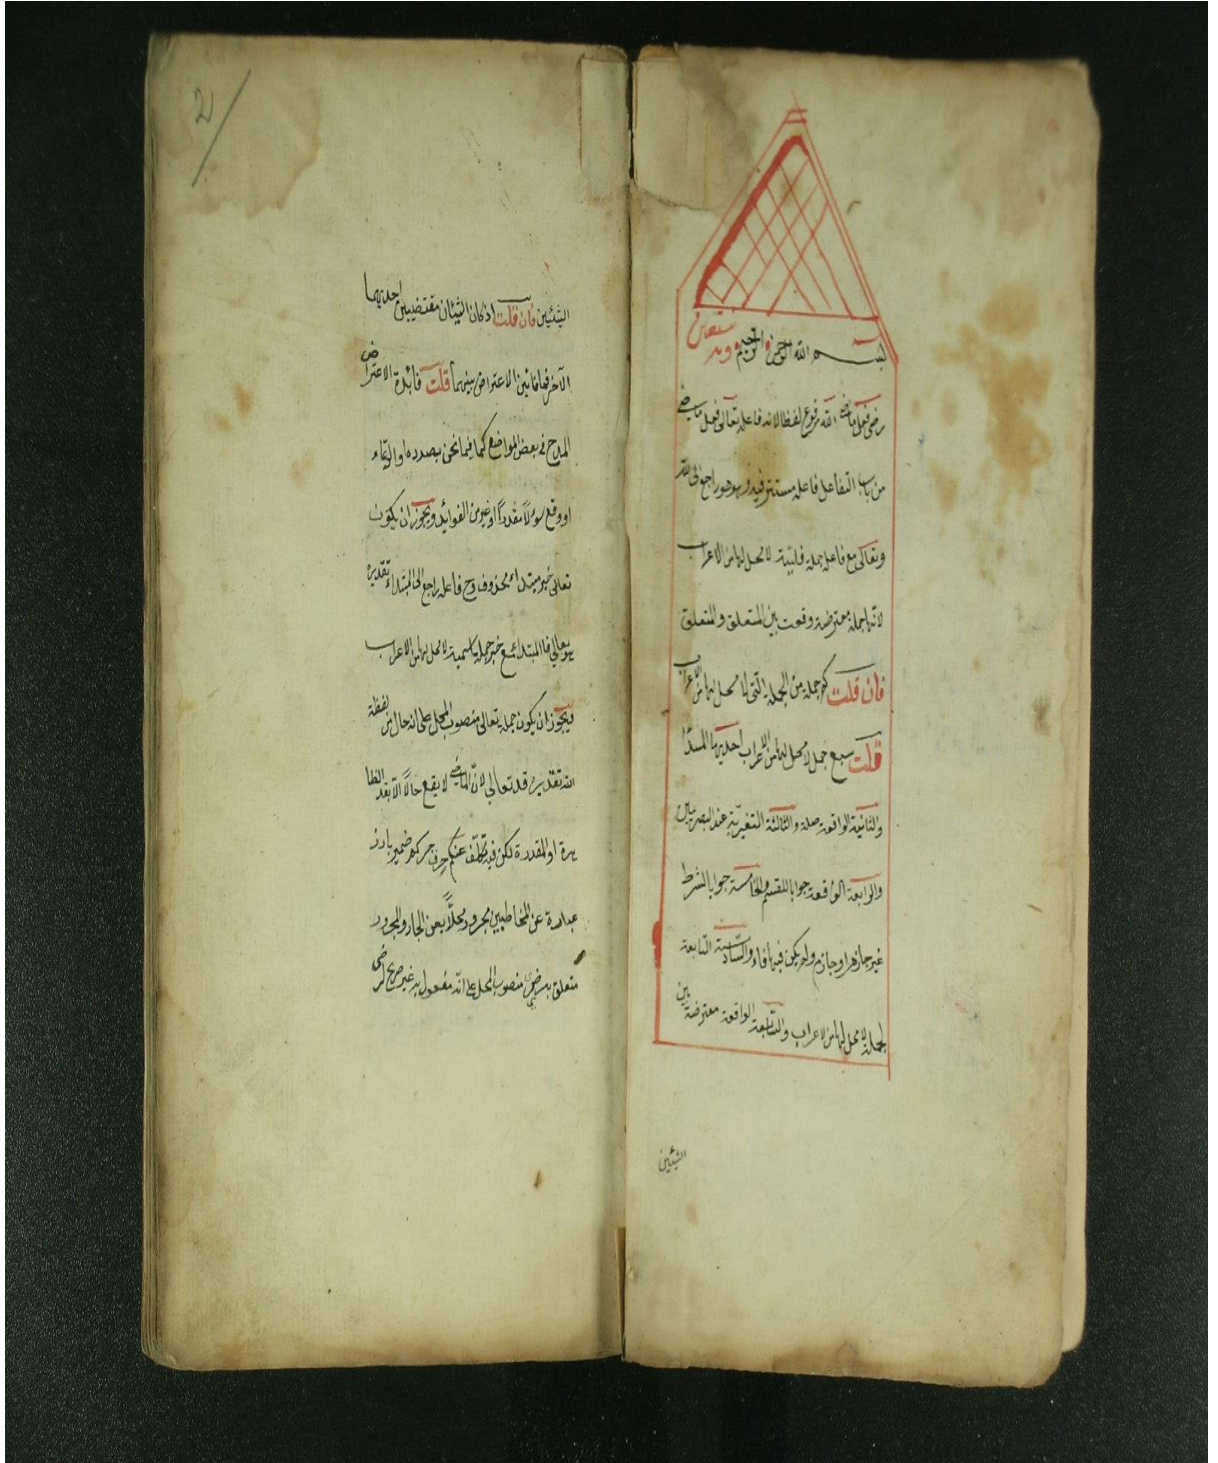 بسم الله الرحمن الرحيم وبه نستعين
رضى فعل ماض الله مرفوع لفظا لانه فاعله تعالى فعل ماضى
من باب التفاعل فاعله مستتر فيه وهو هو راجع الى الله
وتعالى مع فاعله جملة فعلية لا محل لها من الاعراب
لانها جملة معترضة وقعت بين المتعلق والمتعلق
فان قلت كم جملة من الجملة التى لا محل لها من الاعراب
قلت سبع جمل لا محل لها من الاعراب احديها المبتدا
والثانية الواقعة صلة والثالثة التفسيرية عند البصريين
والرابعة الواقعة جوابا للقسم والخامسة جوابا لشرط
غير جازم او جازم ولم يكن فيها فاء والسادسة التابعة
لجملة لا محل لها من الاعراب والسابعة الواقعة معترضة بين
الشيئين
الشيئين فان قلت اذ كان الشيئان مقتضيين احديهما
الآخر فما فائدة الاعتراض بينهما قلت فائدة الاعتراض
المدح فى بعض المواضع كما فيما نحن بصدده او الدعاء
او وقع سؤلا مقدرا او غير من الفوائد ويجوز ان يكون
تعالى خبر مبتداء محذوف وح فاعله راجع الى المبتداء تقديره
هو تعالى فالمبتداء مع خبره جملة اسمية لا محل لها من الاعراب
ويجوز ان يكون جملة تعالى منصوب المحل على انه حال من لفظة
الله تقديره قد تعالى لان الماضى لا يقع حالا الا بقد الظا
هرة او المقدرة لكن فيه تكلف عنكم عن حرف جر كم ضمير بارز
عبارة عن المخاطبين مجرور محلا بعن الجار والمجرور
متعلق برضى منصوب المحل على انه مفعول به غير صريح لرضى